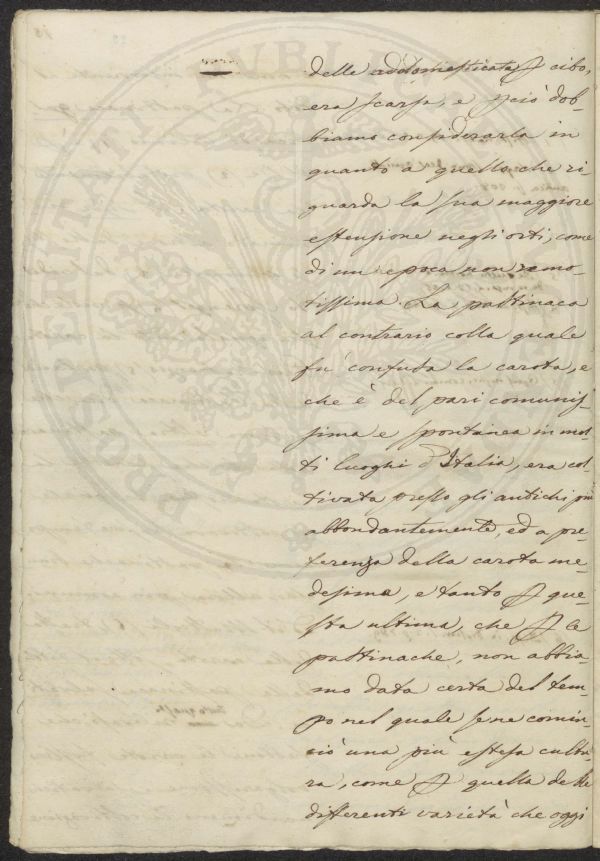 della addomesticata ꝑ cibo,
era scarsa, e ꝑciò dob-
biamo considerarla in
quanto a quello che ri-
guarda la sua maggiore
estensione negli orti, come
di un epoca non remo-
tissima. La pastinaca
al contrario colla quale
fu confusa la carota, e
che è del pari comunis-
sima e spontanea in mol-
ti luoghi d'Italia, era col-
tivata presso gli antichi più
abbondantemente, ed a pre-
ferenza della carota me-
desima, e tanto ꝑ que-
sta ultima, che ꝑ le
pastinache, non abbia-
mo data certa del tem-
po nel quale se ne comin-
ciò una più estesa cultu-
ra, come ꝑ quella delle
differenti varietà che oggi
PROSPERITATI PUBLICAE